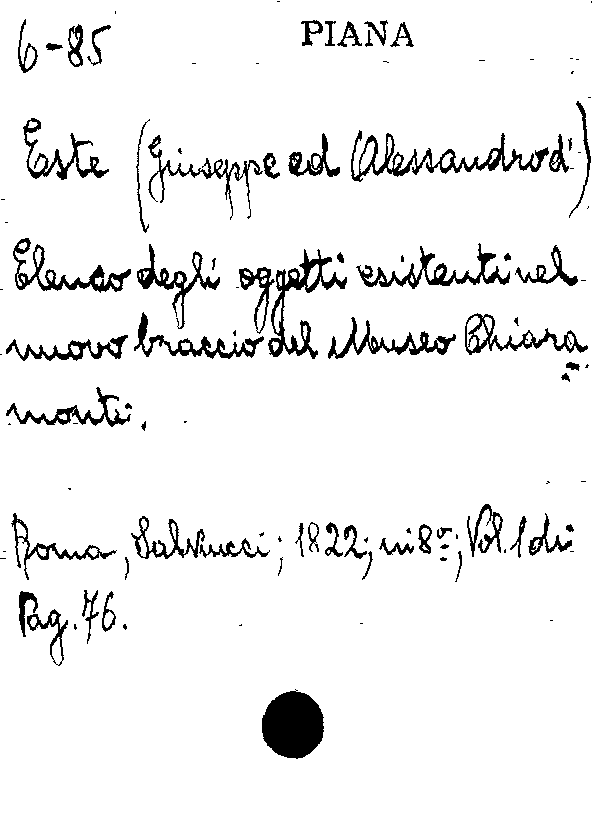 6-85 PIANA
Este (Giuseppe ed Alessandro d')
Elenco degli oggetti esistenti nel
nuovo braccio del Museo Chiara
monti.
Roma, Salviucci; 1822; in 8º; Vol. 1 di
Pag. 76.